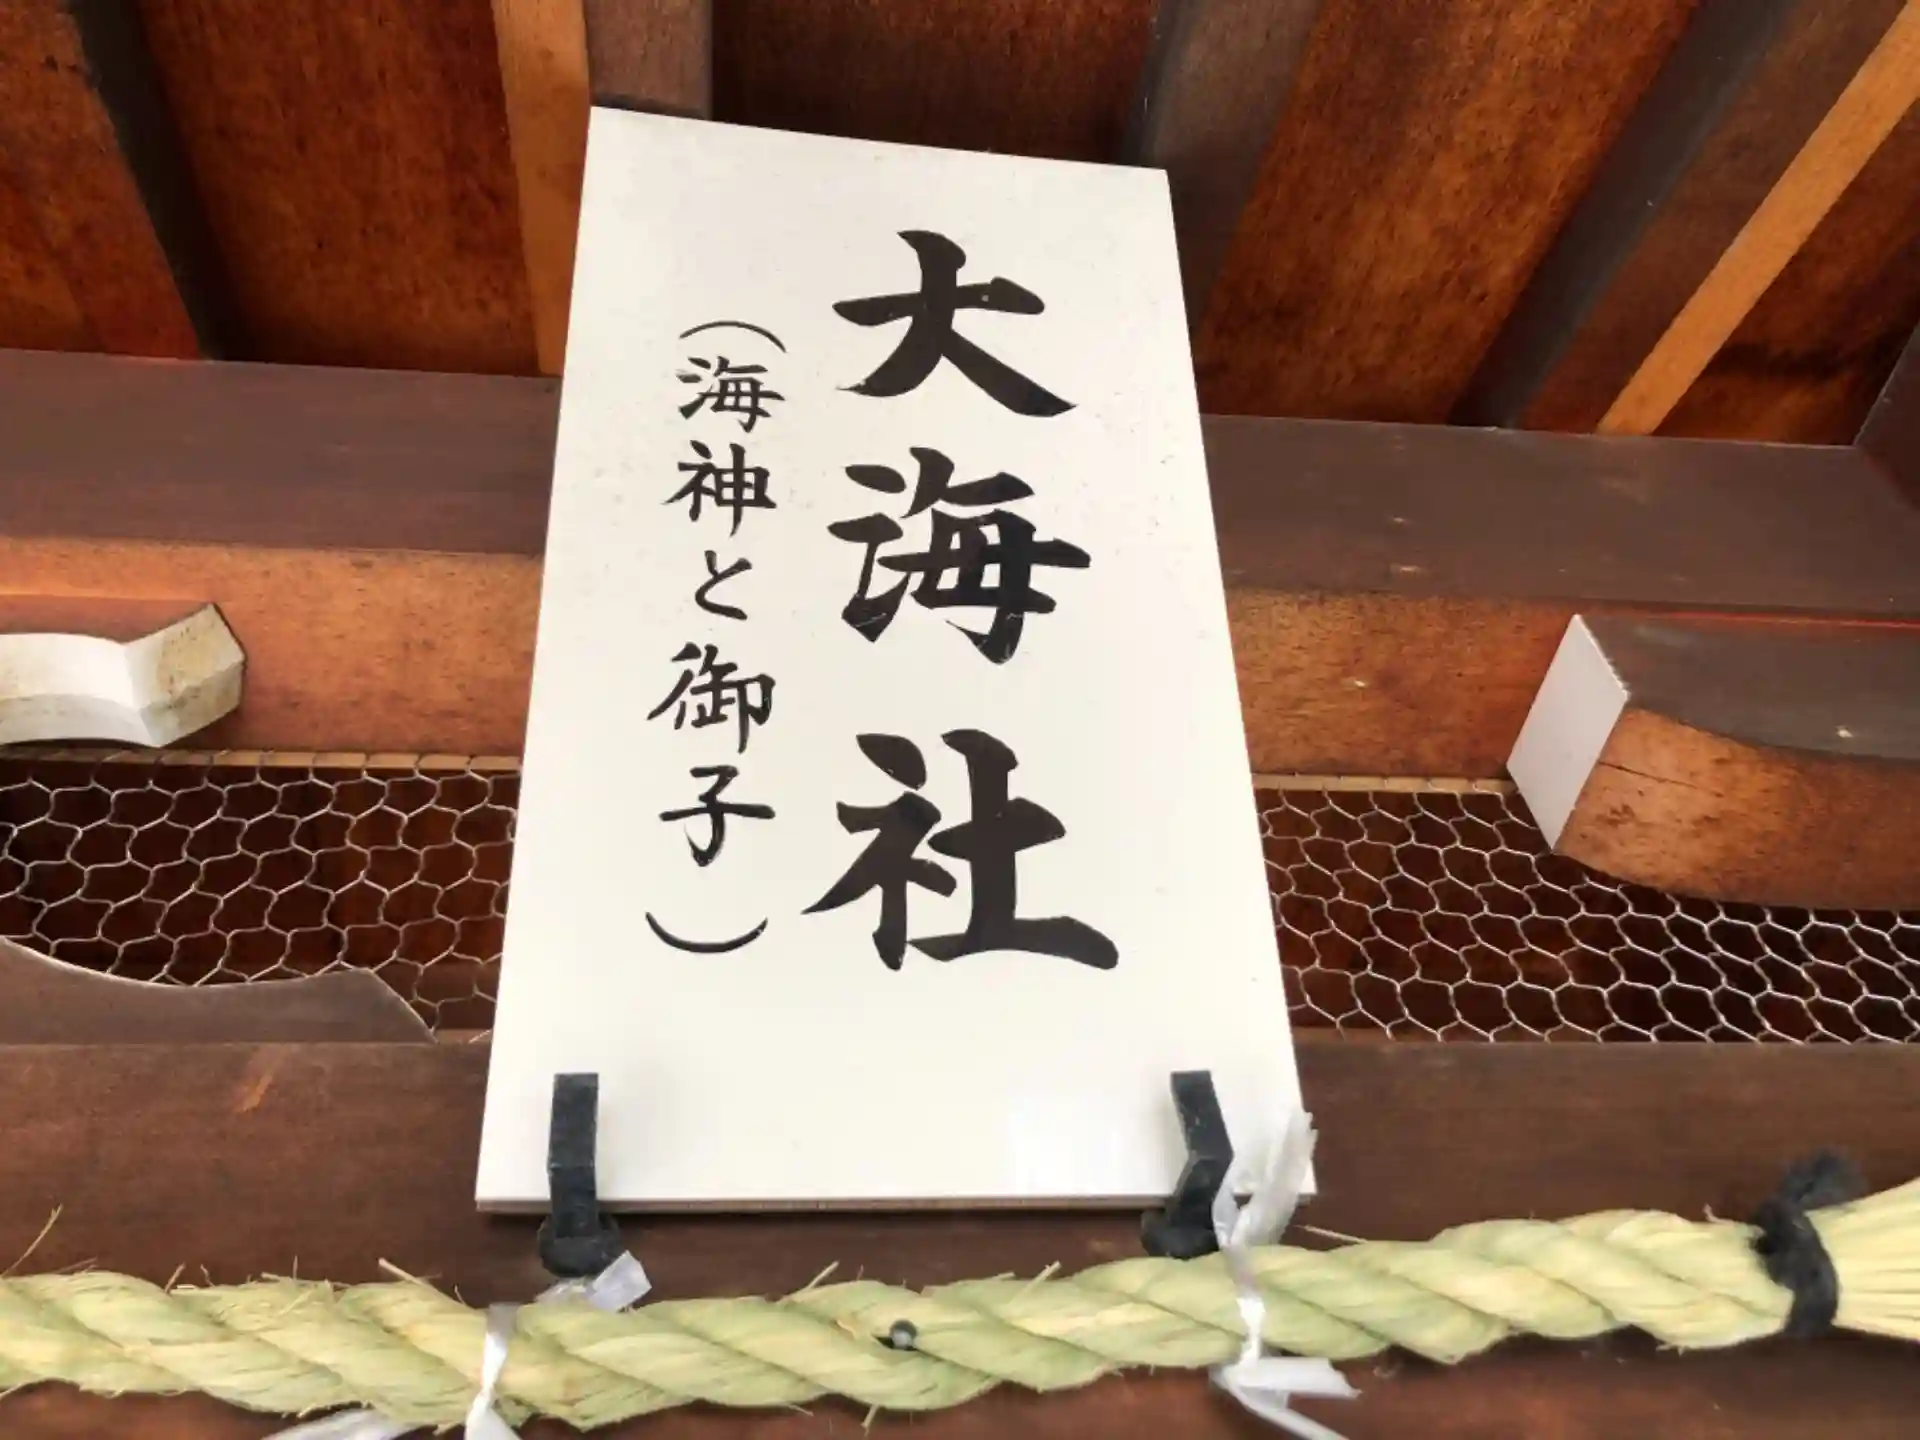 大海社
（海神と御子）